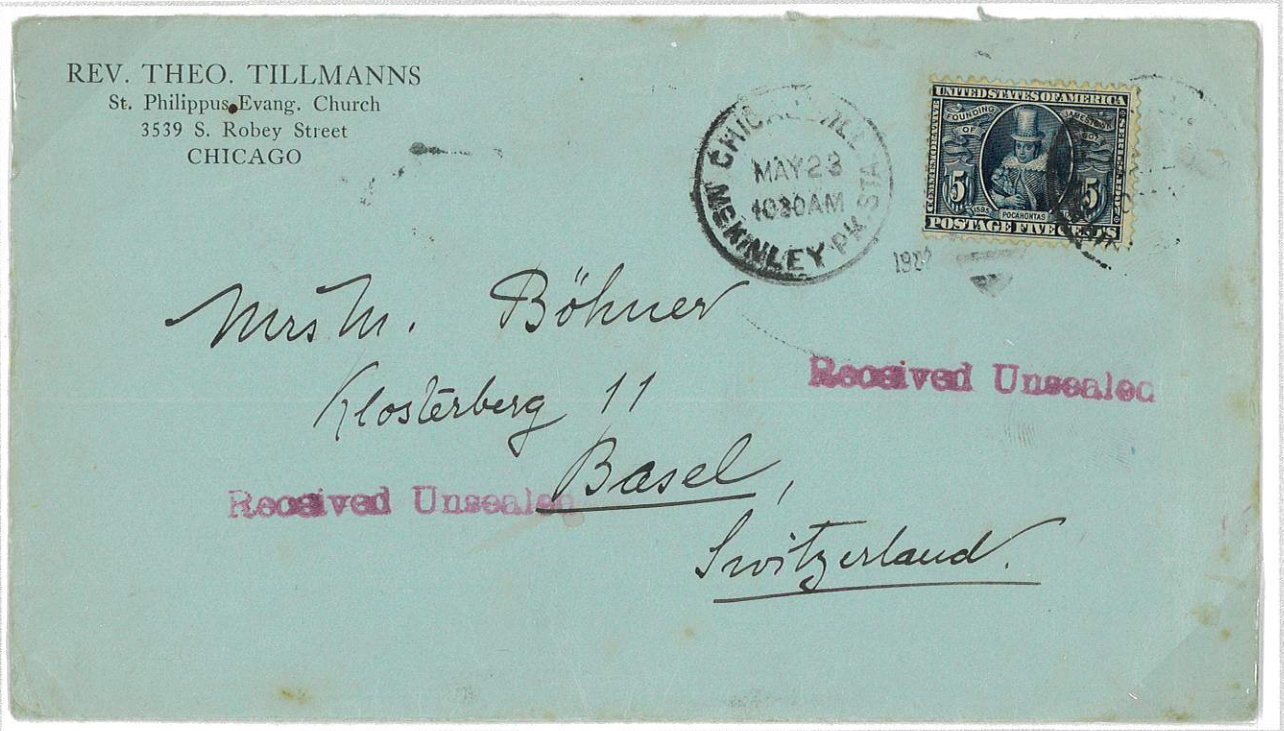 REV. THEO. TILLMANNS
St. Philippus Evang. Church
3539 S. Robey Street
CHICAGO
CHICAGO, ILL.
MAY 23
1030AM
MCKINLEY PK. STA
UNITED STATES OF AMERICA
COMMEMORATIVE
FOUNDING
OF
JAMESTOWN
5
5
POCAHONTAS
POSTAGE FIVE CENTS
Mrs M. Böhner
Klosterberg 11
Basel,
Switzerland.
Received Unsealed
Received Unsealed